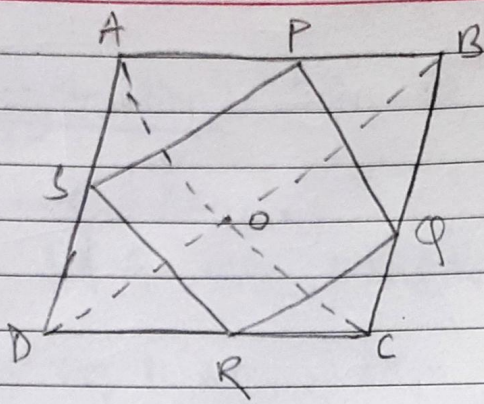 A P B
S O Q
D R C